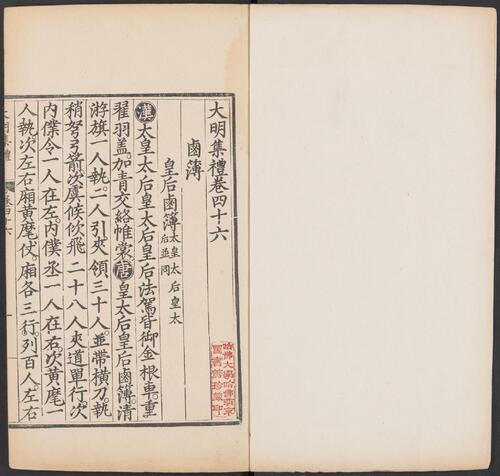 大明集禮卷四十六
鹵簿
皇后鹵簿太皇太后皇太后並同
漢太皇太后皇太后皇后法駕皆御金根車重
翟羽盖加青交絡帷裳唐皇太后皇后鹵簿清
游旗一人執二人引夾領三十人並帶横刀執
稍弩弓箭次虞候佽飛二十八人夾道單行次
内僕令一人在左内僕丞一人在右次黄麾一
人執次左右廂黄麾仗廂各三行列百人左右
大明集禮
卷四十六
一
哈佛大學哈佛燕京
圖書館珍藏印